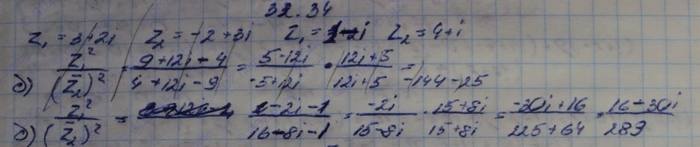 32.34
z₁ = 3+2i z₂ = -2+3i z₁ = 1-i z₂ = 4+i
д) z₁²/(z̄₂)² = (9+12i-4)/(4+12i-9) = (5-12i)/(-5+12i) · (12i+5)/(12i+5) = /(-144-25)
д) z₁²/(z̄₂)² = (1-2i-1)/(16-8i-1) = (-2i)/(15-8i) · (15+8i)/(15+8i) = (-30i+16)/(225+64) = (16-30i)/289